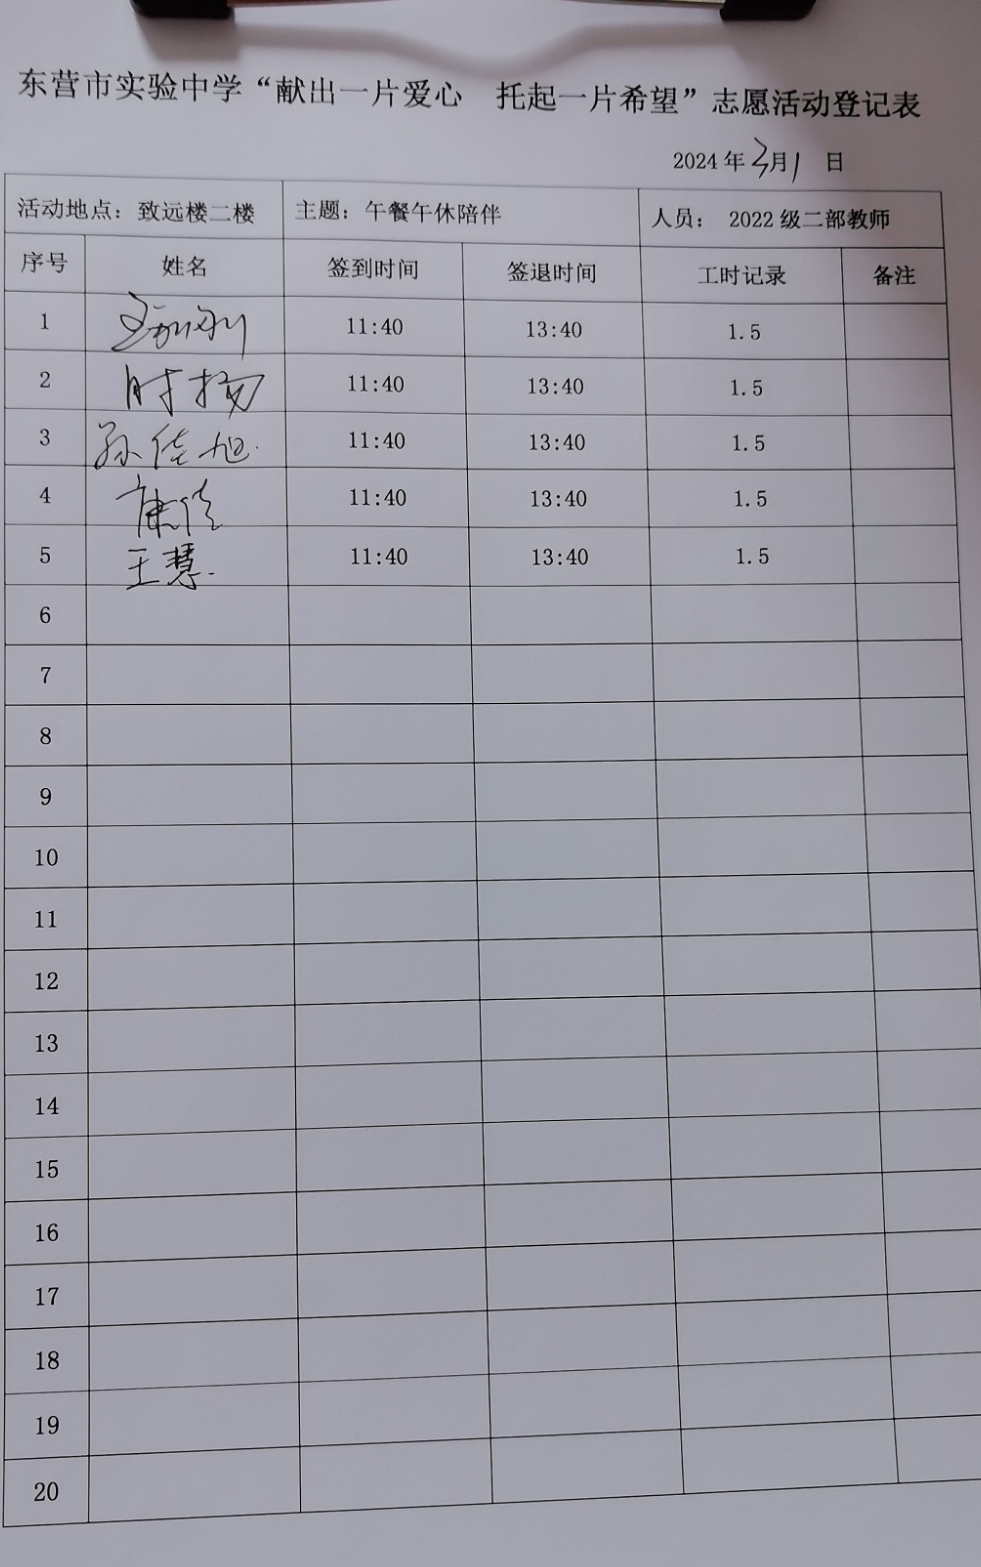 东营市实验中学“献出一片爱心 托起一片希望”志愿活动登记表
2024 年 3月1 日
活动地点：致远楼二楼 主题：午餐午休陪伴 人员： 2022 级二部教师
序号 姓名 签到时间 签退时间 工时记录 备注
1 11:40 13:40 1.5
2 时扬 11:40 13:40 1.5
3 孙佳旭 11:40 13:40 1.5
4 康佳 11:40 13:40 1.5
5 王慧 11:40 13:40 1.5
6
7
8
9
10
11
12
13
14
15
16
17
18
19
20